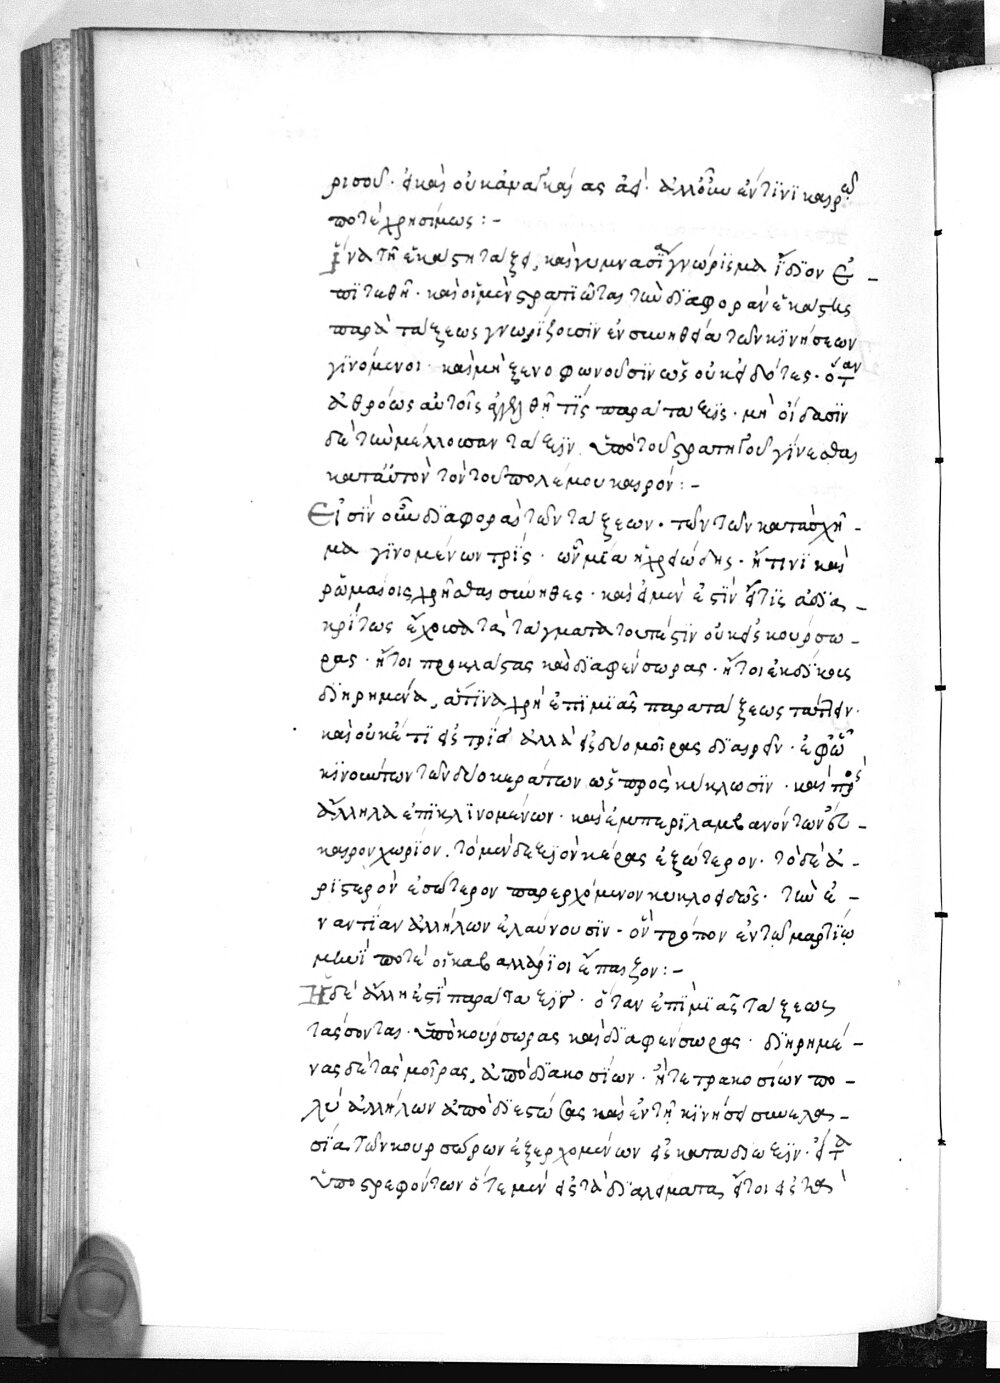 ρισου· εἰ καὶ οὐκ ἀναγκαίας ἀεὶ· ἀλλ' οὖν ἔν τινι καιρῷ
ποτὲ χρησίμως:-
ἵνα τῇ ἑκάστῃ τάξει, καὶ γυμνασίᾳ γνώρισμα ἴδιον ἐ-
πιτεθῇ· καὶ οἱ μὲν στρατιῶται τὴν διαφορὰν ἑκάστης
παρατάξεως γνωρίζουσιν ἐν συνηθείᾳ τῶν κινήσεων
γινόμενοι· καὶ μὴ ξενοφωνοῦσιν ὡς οὐκ εἰδότες· ὅταν
ἀθρόως αὐτοῖς τίς παράταξις· μὴ οἴδασιν
δὲ τὴν μέλλουσαν τάξιν ὑπὸ τοῦ στρατηγοῦ γίνεσθαι
κατ' αὐτὸν τὸν τοῦ πολέμου καιρόν:-
Εἰσὶν οὖν διαφοραὶ τῶν τάξεων· τῶν τῶν κατὰ σχῆ-
μα γινομένων τρίς· ὧν μία ἡ χρειώδης· ᾗ τινι καὶ
ῥωμαίοις χρῆσθαι σύνηθες· καὶ εἰ μὲν ἐστὶν ἥτις ἀδια-
κρίτως ἔχουσα τὰ τάγματα τουτέστιν οὐκ εἰς κούρσω-
ρας· ἤτοι προκλάστας καὶ διαφένσωρας· ἤτοι ἐκδίκους
διῃρημένα, ἅτινα χρὴ ἐπὶ μιᾶς παρατάξεως τάττειν·
καὶ οὐκέτι εἰς τρία ἀλλὰ εἰς δύο μοίρας διαιρεῖν· ἐφ' ὧ
κινούντων τῶν δύο κεράτων ὡς πρὸς κύκλωσιν· καὶ πρὸς
ἄλληλα ἐπικλινομένων· καὶ ἐμπεριλαμβανόντων
καιρον χωρίον. τὸ μὲν δεξιὸν κέρας ἐξώτερον· τὸ δὲ ἀ-
ριστερὸν ἐσώτερον παρερχόμενον κυκλοειδῶς· τὴν ἐ-
ναντίαν ἀλλήλων ἐλαύνουσιν· ὃν τρόπον ἐν τῷ μαρτίῳ
μηνί ποτὲ οἱ καβαλλάριοι ἔπαιζον:-
Ἡ δὲ ἄλλη ἐστὶ παράταξις· ὅταν ἐπὶ μιᾶς τάξεως
τάσσονται· ὑπὸ κούρσωρας καὶ διαφένσωρας· διῃρημέ-
νας δὲ τὰς μοίρας, ἀπὸ διακοσίων· ἢ τετρακοσίων πο-
λὺ ἀλλήλων ἀποδιεστώσας καὶ ἐν τῇ κινήσει συνελα-
σία τῶν κουρσώρων ἐξερχομένων εἰς καταδίωξιν· εἶτα
ὑποστρεφόντων ὅτε μὲν εἰς τὰ διαλείματα, ἤτοι εἰς τὰς